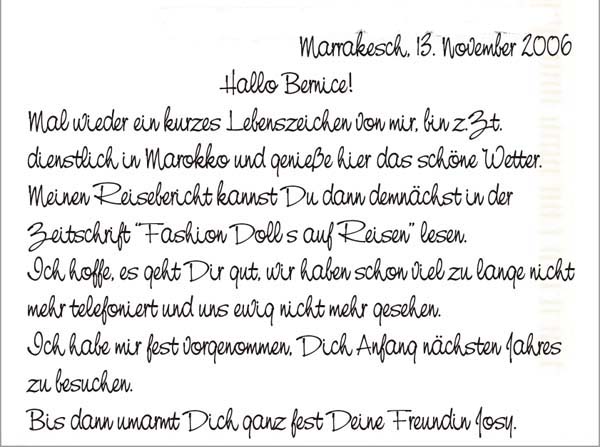 Marrakesch, 13. November 2006
Hallo Bernice!
Mal wieder ein kurzes Lebenszeichen von mir, bin z.Zt.
dienstlich in Marokko und genieße hier das schöne Wetter.
Meinen Reisebericht kannst Du dann demnächst in der
Zeitschrift "Fashion Doll s auf Reisen" lesen.
Ich hoffe, es geht Dir gut, wir haben schon viel zu lange nicht
mehr telefoniert und uns ewig nicht mehr gesehen.
Ich habe mir fest vorgenommen, Dich Anfang nächsten Jahres
zu besuchen.
Bis dann umarmt Dich ganz fest Deine Freundin Josy.